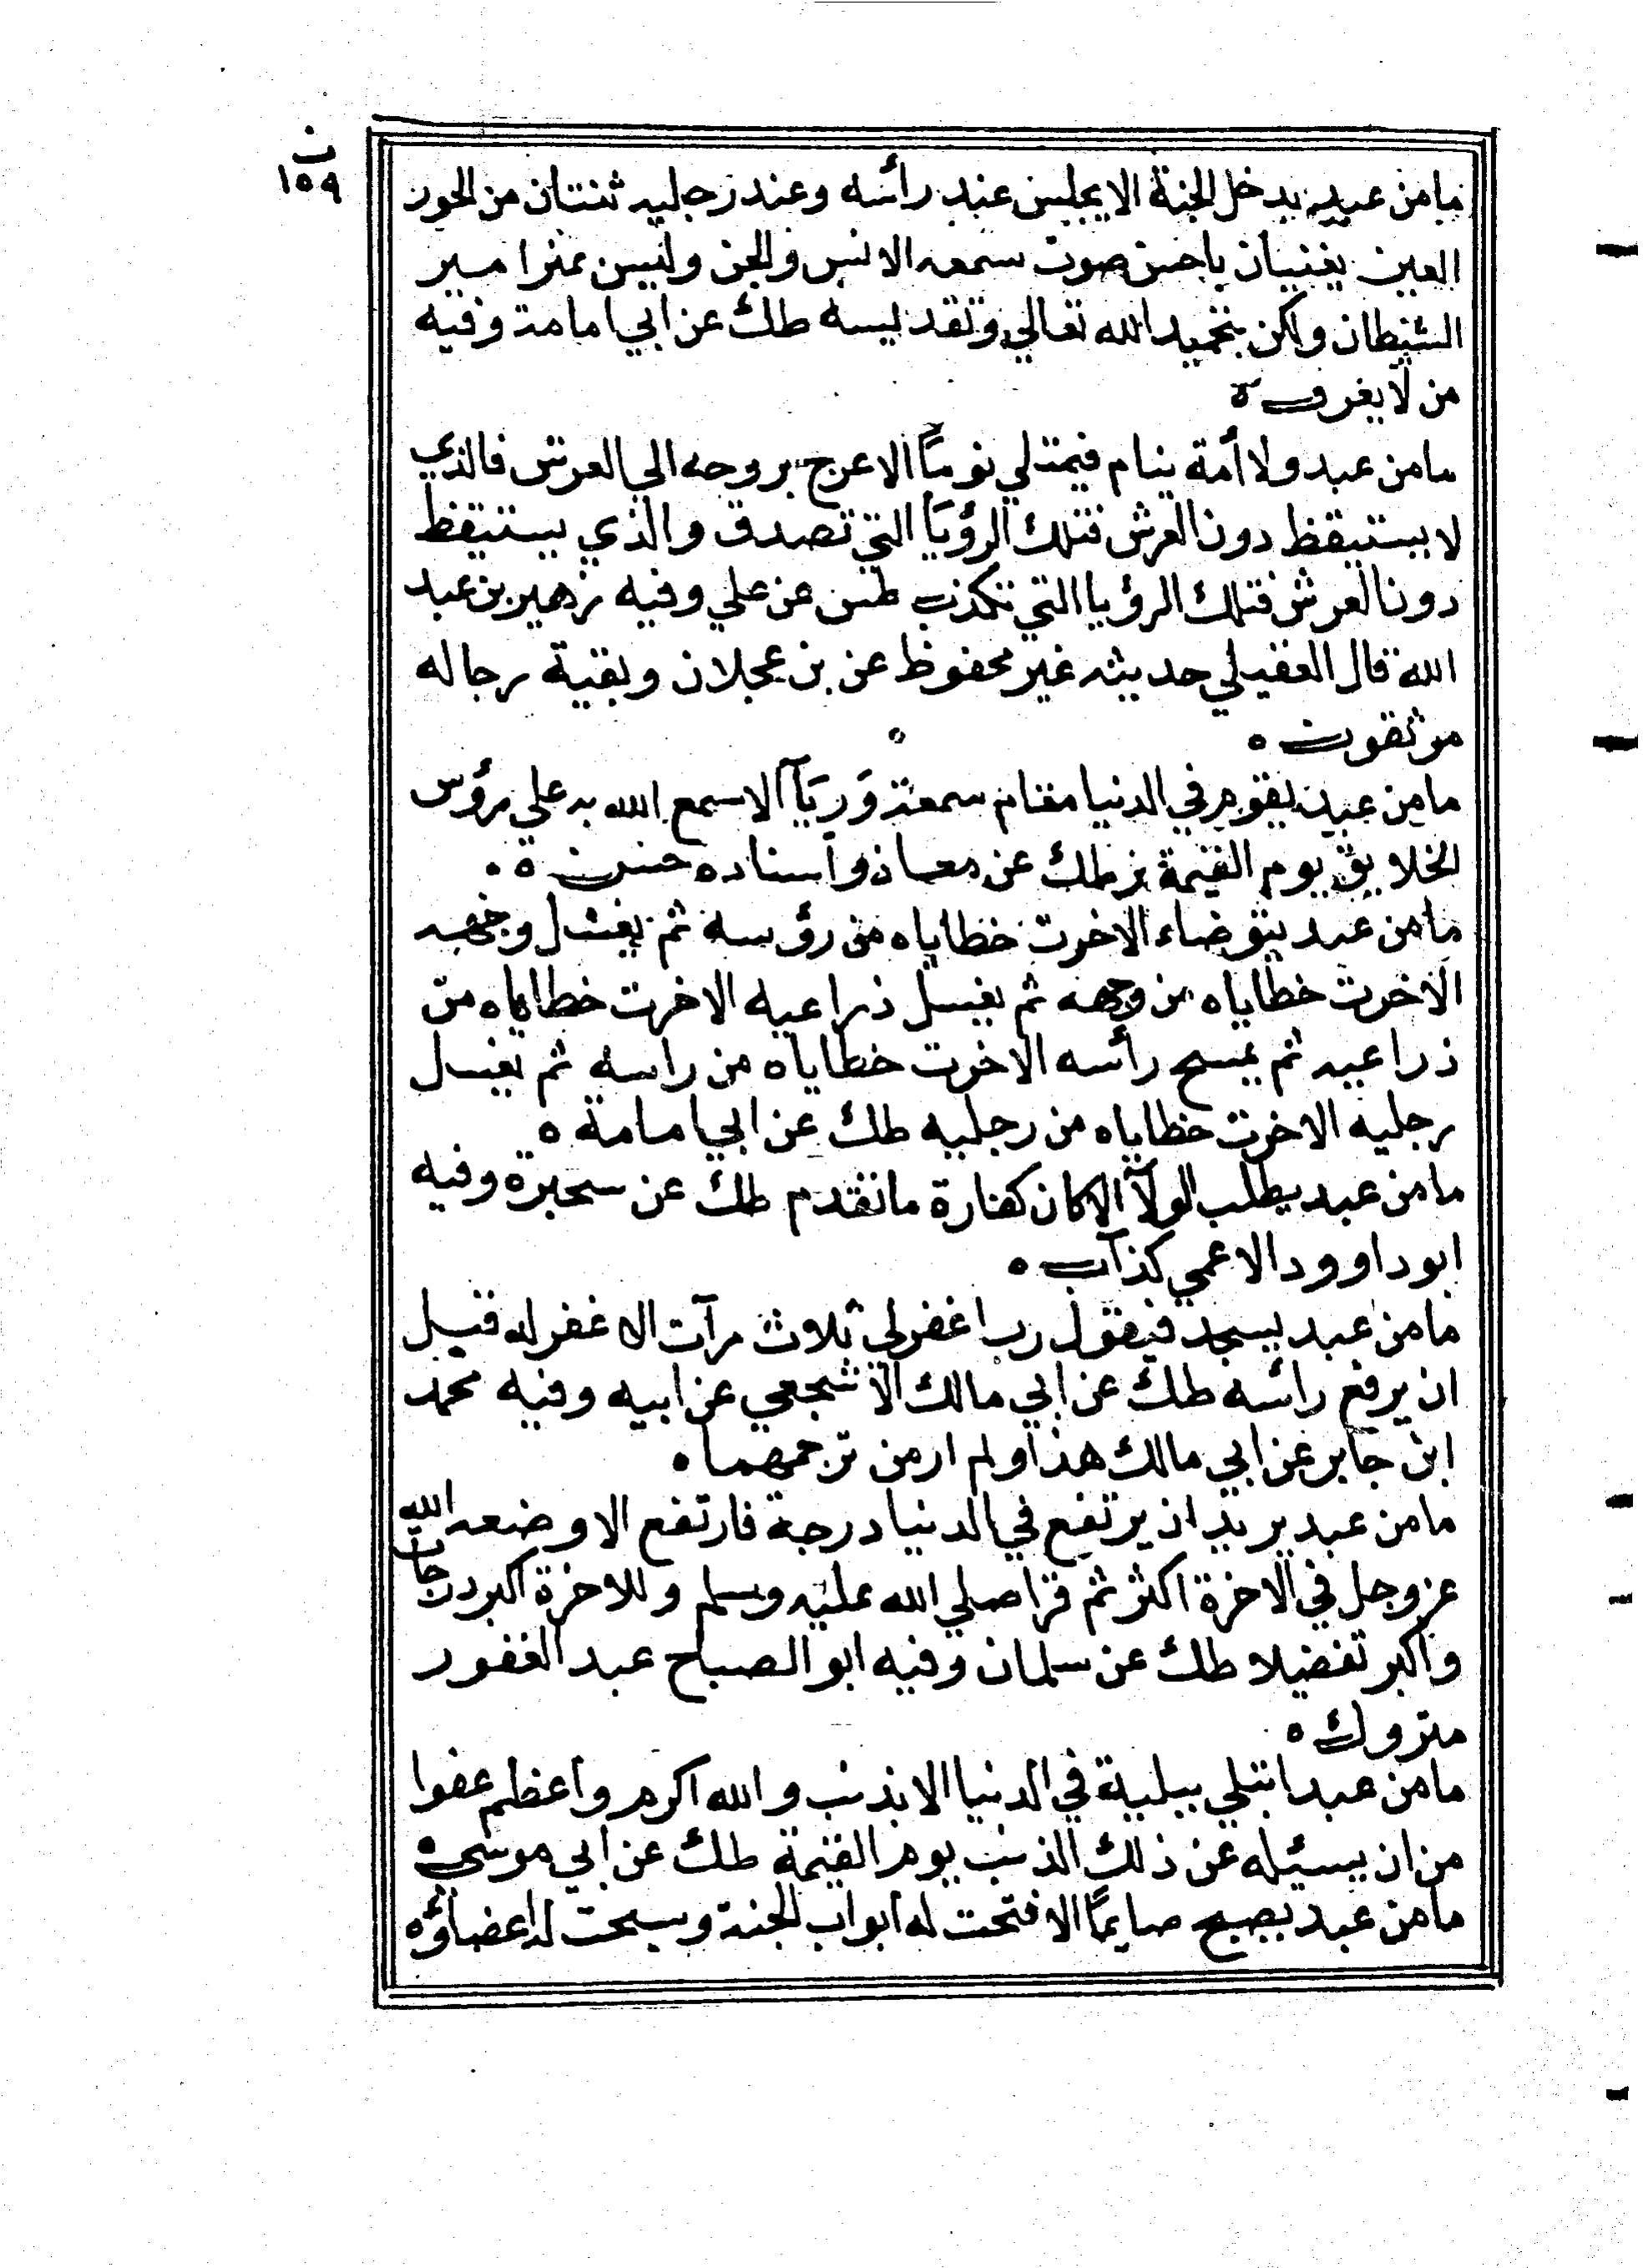 ن
١٥٩
مامن عبد يدخل الجنة الا يجلس عند رأسه وعند رجليه ثنتان من الحور
العين يغنيان باحسن صوت سمعه الانس والجن وليس بمزامير
الشيطان ولكن بتحميد الله تعالي وتقديسه طك عن ابي امامة وفيه
من لا يعرف ه
مامن عبد ولا أمة ينام فيمتلي نومًا الا عرج بروحه الي العرش فالذي
لا يستيقظ دون العرش فتلك الرؤيا التي تصدق والذي يستيقظ
دون العرش فتلك الرؤيا التي تكذب طس عن علي وفيه زهير بن عبد
الله قال العقيلي حديثه غير محفوظ عن بن عجلان وبقية رجاله
موثقون ه
مامن عبد يقوم في الدنيا مقام سمعة وَرِيَآ الا سمع الله به علي رؤس
الخلايق يوم القيمة بز طك عن معاذ واسناده حسن ه
مامن عبد يتوضاء الا خرت خطاياه من رؤسه ثم يغسل وجهه
الا خرت خطاياه من وجهه ثم يغسل ذراعيه الا خرت خطاياه من
ذراعيه ثم يمسح رأسه الا خرت خطاياه من راسه ثم يغسل
رجليه الا خرت خطاياه من رجليه طك عن ابي امامة ه
مامن عبد يطلب الولآ الا كان كفارة ما تقدم طك عن سخبرة وفيه
ابوداوود الاعمي كذاب ه
مامن عبد يسجد فيقول رب اغفرلي ثلاث مرآت الا غفر له قبل
ان يرفع رأسه طك عن ابي مالك الاشجعي عن ابيه وفيه محمد
ابن جابر عن ابي مالك هذا ولم ار من ترجمهما ه
مامن عبد يريد ان يرتفع في الدنيا درجة فارتفع الا وضعه الله
عز وجل في الاخرة اكثر ثم قرا صلي الله عليه وسلم وللاخرة اكبر درجات
واكبر تفضيلا طك عن سلمان وفيه ابو الصباح عبد الغفور
متروك ه
مامن عبد ابتلي ببلية في الدنيا الا بذنب والله اكرم واعظم عفوا
من ان يسئله عن ذلك الذنب يوم القيمة طك عن ابي موسي ه
مامن عبد يصبح صايمًا الا فتحت له ابواب الجنة وسبحت له اعضاؤه